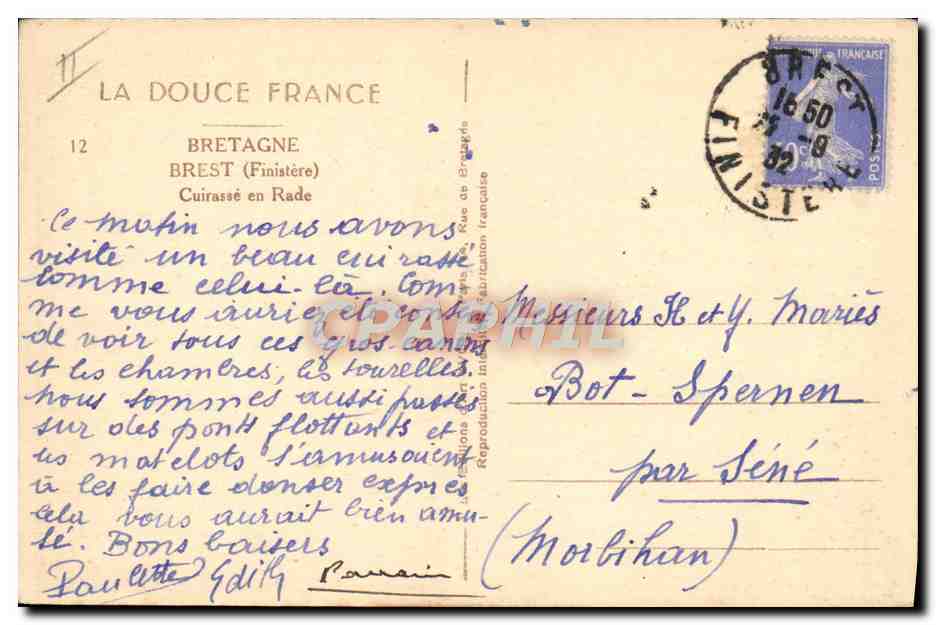 LA DOUCE FRANCE
12
BRETAGNE
BREST (Finistère)
Cuirassé en Rade
Ce matin nous avons
visité un beau cuirassé
comme celui-là. Com-
me vous auriez été content
de voir tous ces gros canons
et les chambres, les tourelles.
Nous sommes aussi passés
sur des ponts flottants et
les matelots s'amusaient
à les faire danser exprès
cela vous aurait bien amu-
sé. Bons baisers
Paulette Edith Parrain
Rue de Bretagne
Reproduction Fabrication française
CPAPHIL
FRANÇAISE
POSTES
BREST
16 50
-9
32
FINISTERE
Messieurs H et Y. Mariès
Bot-Spernen
par Séné
(Morbihan)